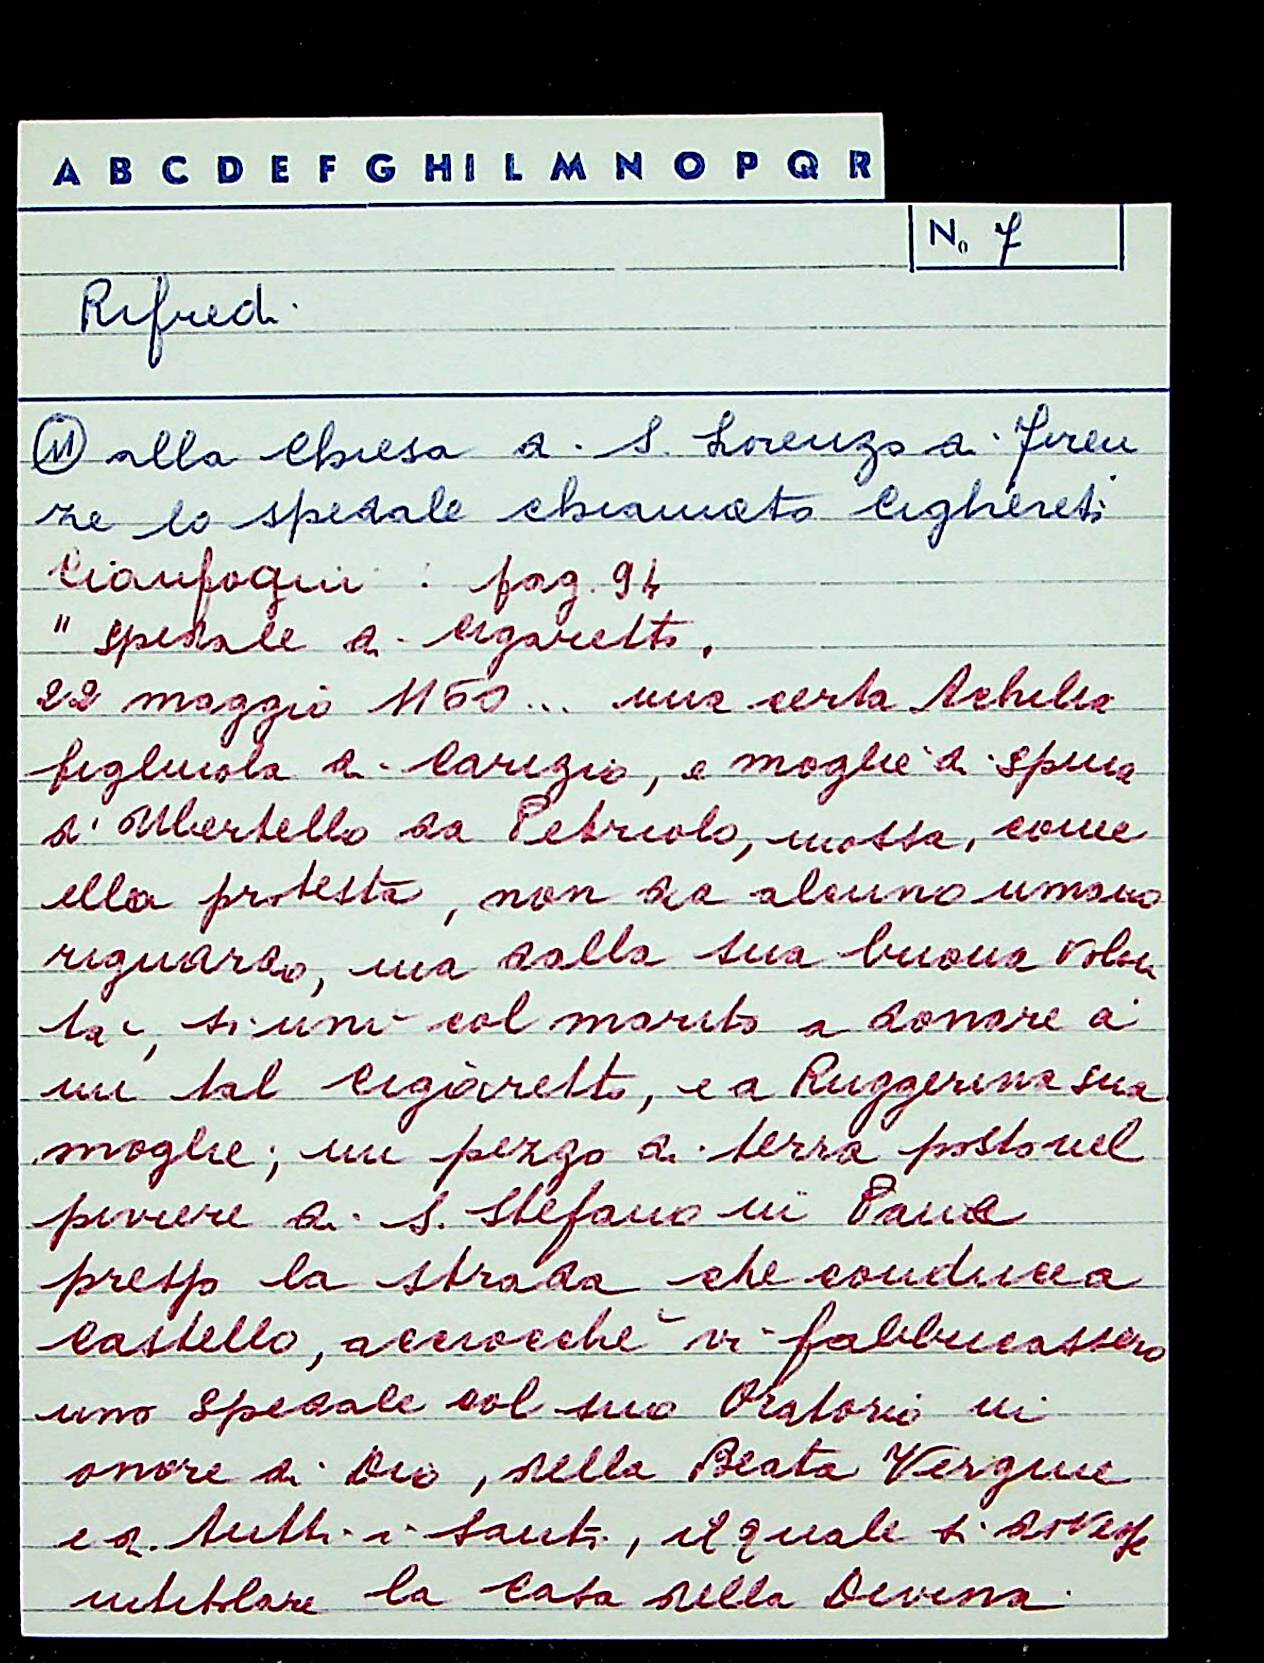 A B C D E F G H I L M N O P Q R
No 7
Rifredi
M alla Chiesa di S. Lorenzo di Firen
ze lo spedale chiamato Cighereti
Cianfogni : pag. 94
" Spedale di Cigaretto.
22 maggio 1160... una certa Achilia
figliuola di Carizio, e moglie di Spina
d'Ubertello da Petriolo, mossa, come
ella protesta, non da alcuno umano
riguardo, ma dalla sua buona volon
ta', si unì col marito a donare a
un tal Cigiaretto, e a Ruggerina sua
moglie; un pezzo di terra posto nel
piviere di S. Stefano in Pane
presso la strada che conduce a
Castello, acciocchè vi fabbricassero
uno Spedale col suo Oratorio in
onore di Dio, della Beata Vergine
e di tutti i Santi, il quale si dovesse
intitolare la Casa della Divina